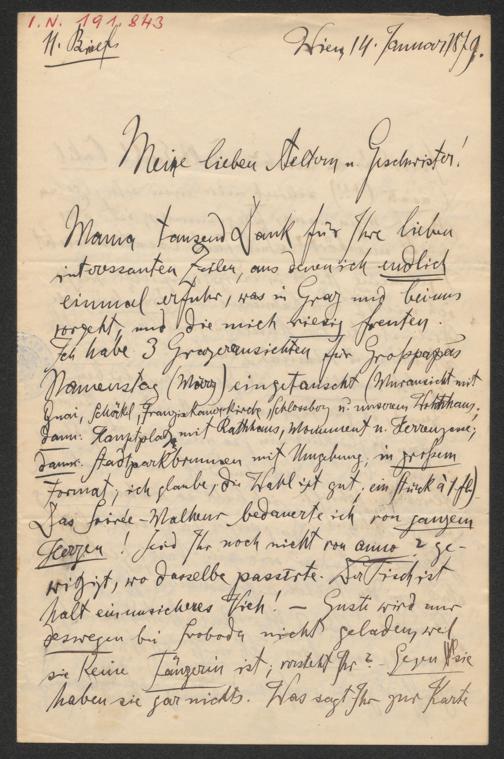 I.N. 191.843
11. Brief
Wien, 14. Januar 1879.
Meine lieben Aeltern u. Geschwister!
Mama tausend Dank für Ihre lieben
interessanten Zeilen, aus denen ich endlich
einmal erfuhr, was in Graz und bei uns
vorgeht, und die mich riesig freuten.
Ich habe 3 Grazeransichten für Grosspapas
Namenstag (März) eingetauscht (Muransicht mit
Quai, Schöckl, Franziskanerkirche, Schlossberg u. unserem Wohnhaus;
dann: Hauptplatz mit Rathhaus, Monument u. Herrengasse;
dann: Stadtparkbrunnen mit Umgebung, in grossem
Format, ich glaube, die Wahl ist gut, ein Stück à 1 fl.)
Das Soirée-Malheur bedauerte ich von ganzem
Herzen! Seid Ihr noch nicht von anno 2 ge-
witzigt, wo dasselbe passirte. Der Fisch ist
halt ein unsicheres Vieh! – Guste wird nur
deswegen bei Svoboda nicht geladen, weil
sie keine Tänzerin ist; versteht Ihr? – Gegen sie
haben sie gar nichts. Was sagt Ihr zur Karte